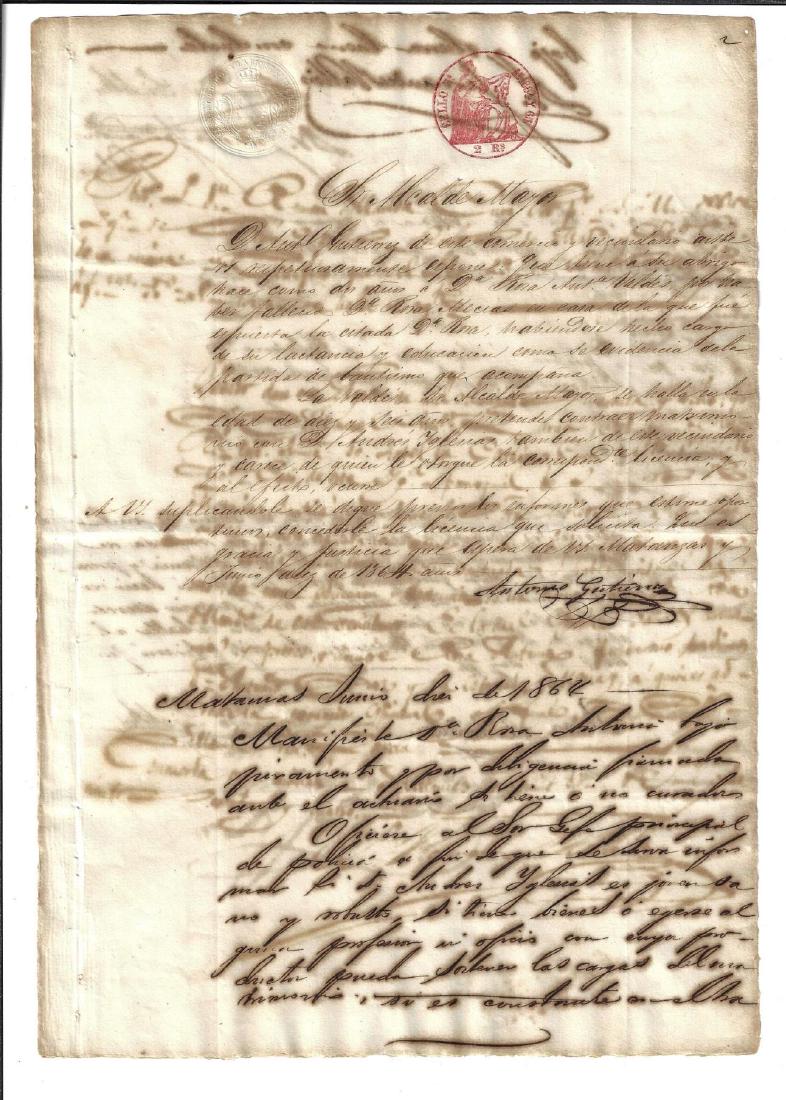 2
SELLO
2 Rs
Sr. Alcalde Mayor
D. Antº Gutierrez de este comercio y vecindario ante
V. respetuosamente espone: que tiene a su abrigo
hace como dos años a Dª Rosa Antª Valdes, por ha
ber fallecido Dª Rosa Mecia casa de la que fue
espuesta la citada Dª Rosa, habiendose hecho cargo
de su lactancia y educacion como se evidencia de la
partida de bautismo que acompaña
La Valdes Sr. Alcalde Mayor, se halla en la
edad de diez y seis años, pretende contraer matrimo
nio con D. Andres Iglesias tambien de este vecindario
y carece de quien le otorgue la correspondte licencia, y
al efecto, ocurre
A VS suplicandole se digne previos los informes que estime opor
tunos, concederle la licencia que solicita: Que es
gracia y justicia que espera de VS Matanzas y
Junio diez de 1864 años
Antonio Gutierrez
Matanzas Junio diez de 1864
Manifieste Dª Rosa Antonia bajo
juramento y por diligencia firmada
ante el actuario si tiene ó no curador
Oficiese al Sor Gefe principal
de policia a fin de que se sirva infor
mar si D. Andres Yglesias es joven sa
no y robusto, si tiene bienes ó egerse al
guna profesion ú oficio con cuyo pro-
ducto pueda sostener las cargas del ma
trimonio, si es constante en el tra